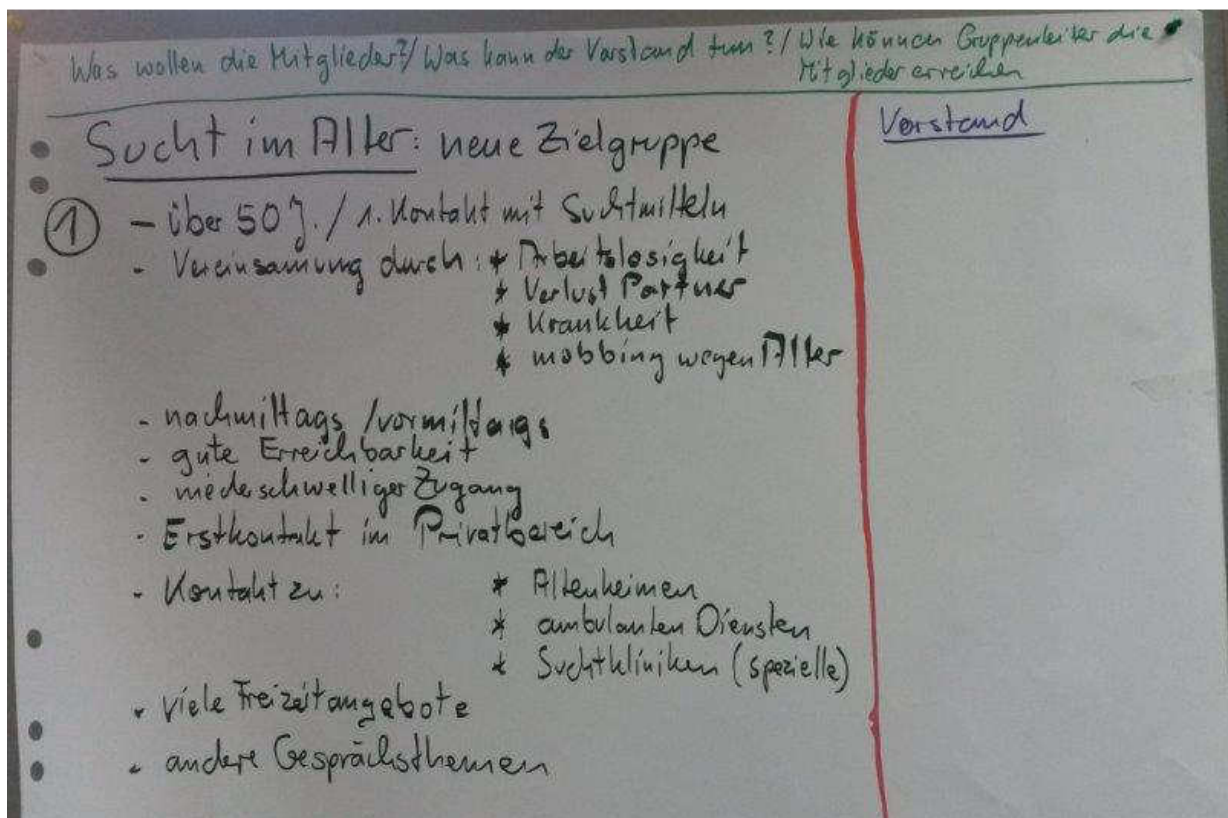 Was wollen die Mitglieder?/ Was kann der Vorstand tun?/ Wie können Gruppenleiter die
Mitglieder erreichen
Sucht im Alter: neue Zielgruppe
Vorstand
① - über 50 J. / 1. Kontakt mit Suchtmitteln
- Vereinsamung durch: * Arbeitslosigkeit
* Verlust Partner
* Krankheit
* mobbing wegen Alter
- nachmittags / vormittags
- gute Erreichbarkeit
- niederschwelliger Zugang
- Erstkontakt im Privatbereich
- Kontakt zu: * Altenheimen
* ambulanten Diensten
* Suchtkliniken (spezielle)
- viele Freizeitangebote
- andere Gesprächsthemen